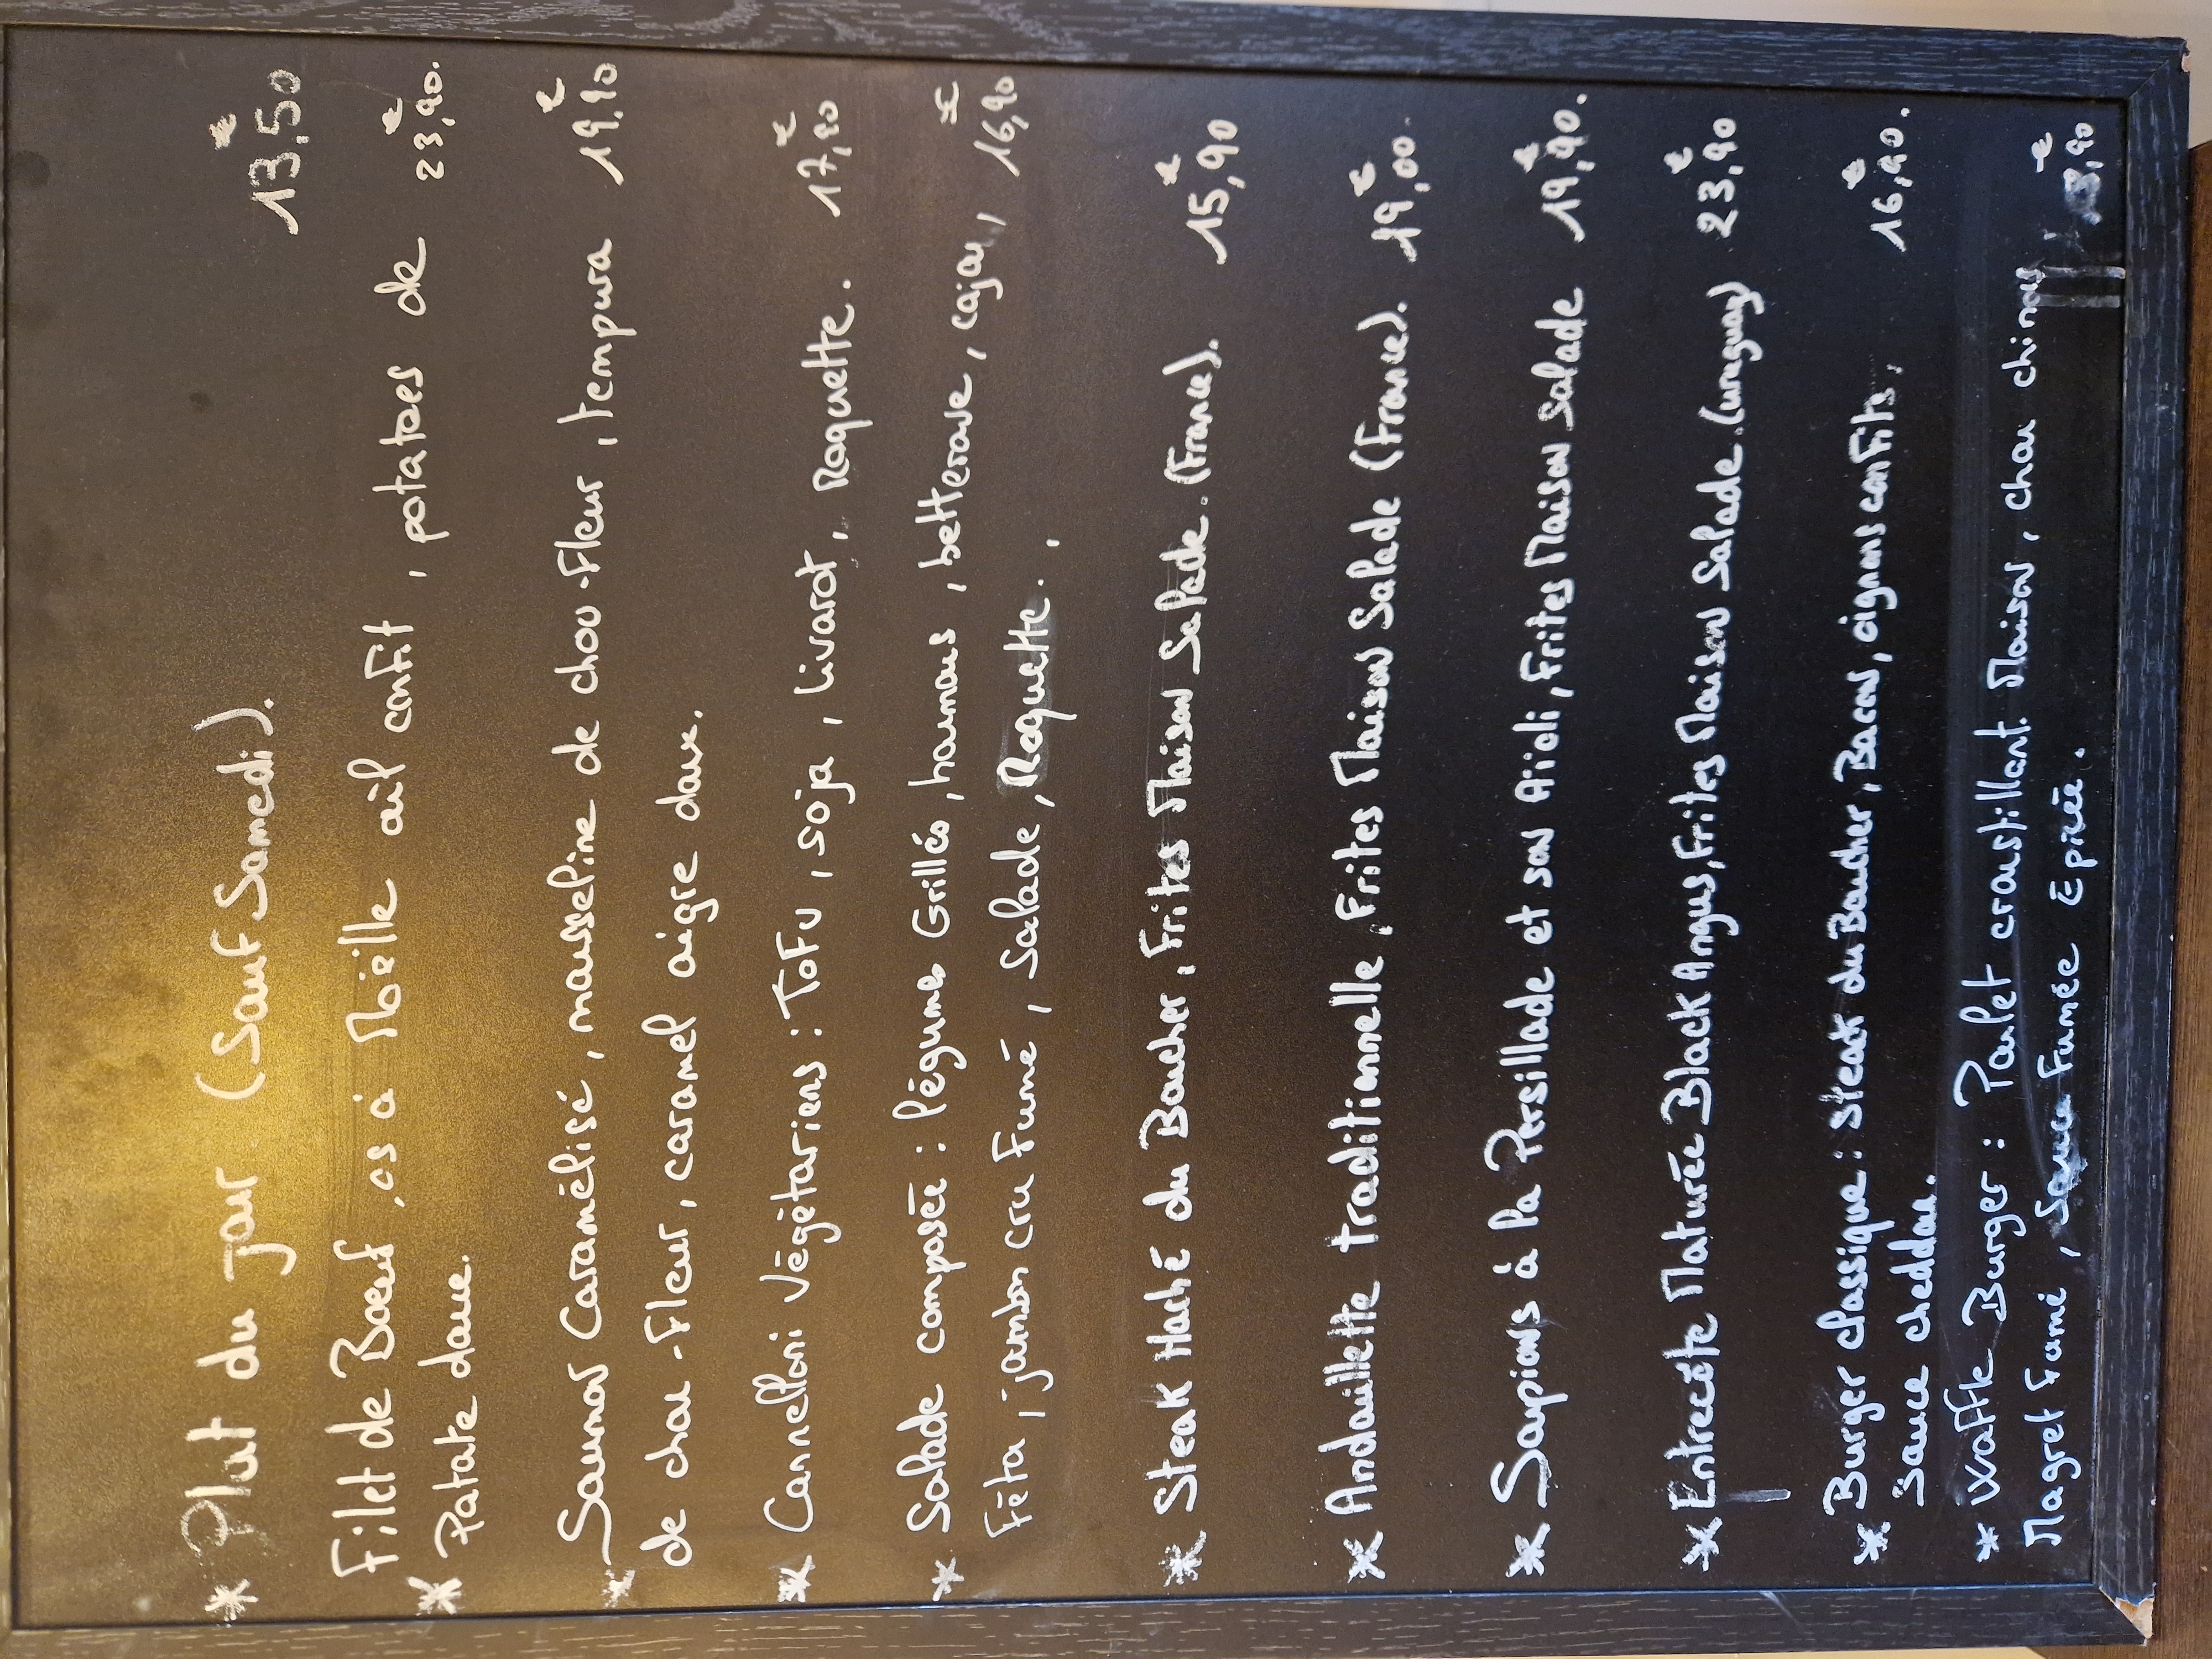 * Plat du jour (Sauf Samedi). 13,50€
Filet de Boeuf, os à Moëlle ail confit, potatoes de 23,90€.
* Patate douce.
Saumon Caramélisé, mousseline de chou-Fleur, tempura 19,90€
* de chou-Fleur, caramel aigre doux.
* Cannelloni Végétariens : Tofu, soja, Livarot, Roquette. 17,90€
* Salade composée : légumes Grillés, houmous, betterave, cajou, 16,90€
Féta, jambon cru Fumé, Salade, Roquette.
* Steak Haché du Boucher, Frites Maison Salade. (France). 15,90€
* Andouillette traditionnelle, Frites Maison Salade (France). 19,00€
* Soupions à la Persillade et son Aïoli, Frites Maison Salade 19,90€.
* Entrecôte Maturée Black Angus, Frites Maison Salade. (uruguay) 23,90€
* Burger classique : Steak du Boucher, Bacon, oignons confits, 16,90€.
sauce cheddar.
* Waffle Burger : Poulet croustillant Maison, chou chinois
Magret Fumé, Sauce Fumée Epicée.